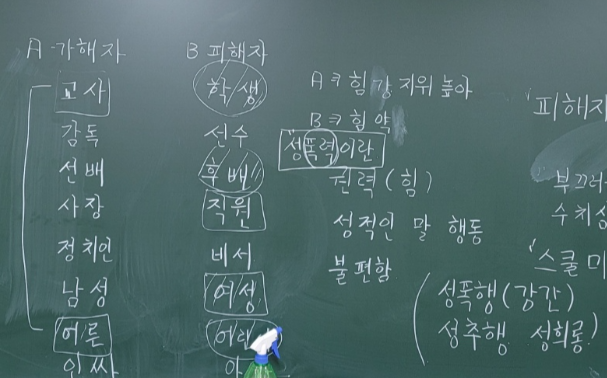 A - 가해자
교사
감독
선배
사장
정치인
남성
어른
B 피해자
학/생
선수
후배
직원
비서
여성
A 큭 힘 강 지위 높아
B 큭 힘 약
"성폭력이란
권력 (힘)
성적인 말 행동
불편함
성폭행 (강간)
성추행 성희롱
'피해자
수치심
"스쿨 미